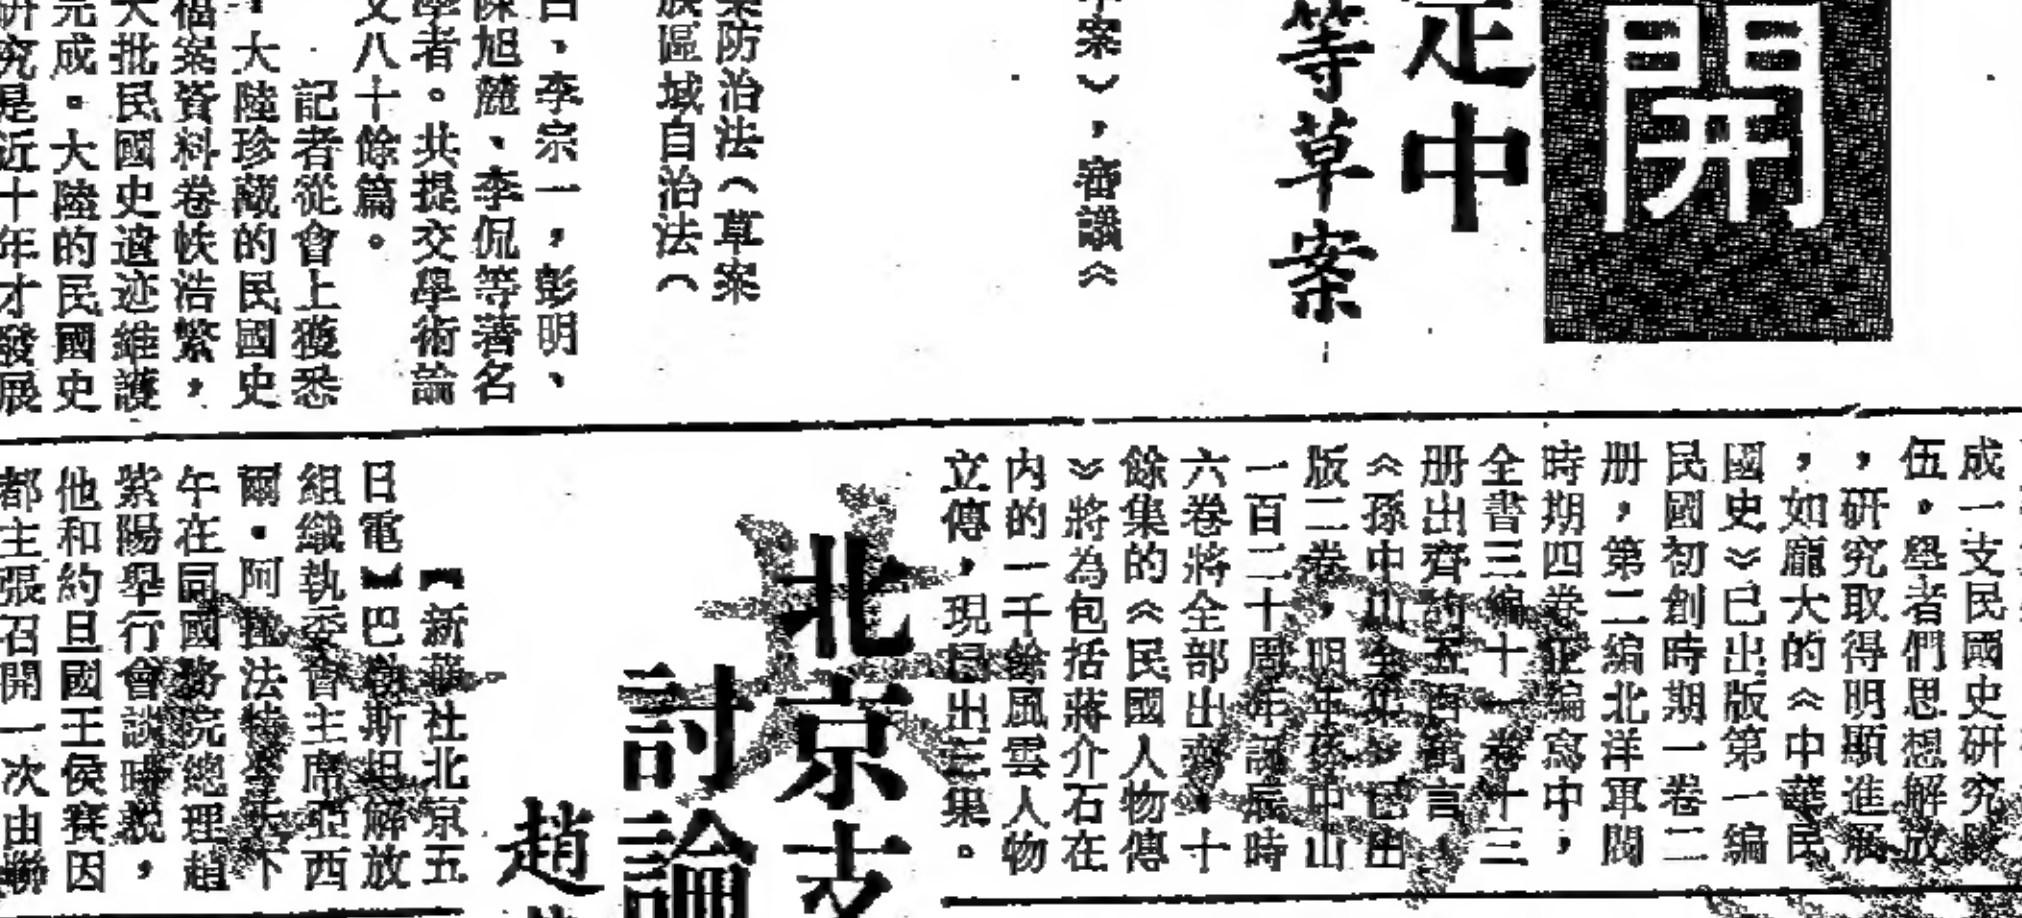 開
定中
等草案
案》，審議《
防治法（草案
族區域自治法（
、李宗一，彭明、
陳旭麓、李侃等著名
學者。共提交學術論
文八十餘篇。
記者從會上獲悉
，大陸珍藏的民國史
檔案資料卷帙浩繁，
大批民國史遺迹維護
完成。大陸的民國史
研究是近十年才發展
成一支民國史研究隊
伍。學者們思想解放
，研究取得明顯進展
，如龐大的《中華民
國史》已出版第一編
民國初創時期一卷二
册，第二編北洋軍閥
時期四卷正編寫中，
全書三編十一卷十三
册出齊約五百萬言，
《孫中山全集》已出
版二卷，明年孫中山
一百二十周年誕辰時
六卷將全部出齊，十
餘集的《民國人物傳
》將為包括蔣介石在
内的一千餘風雲人物
立傳，現已出三果。
北京支
討論
趙
【新華社北京五
日電】巴勒斯坦解放
組織執委會主席亞西
爾·阿拉法特今天下
午在同國務院總理趙
紫陽舉行會談時説，
他和約旦國王侯賽因
都主張召開一次由聯